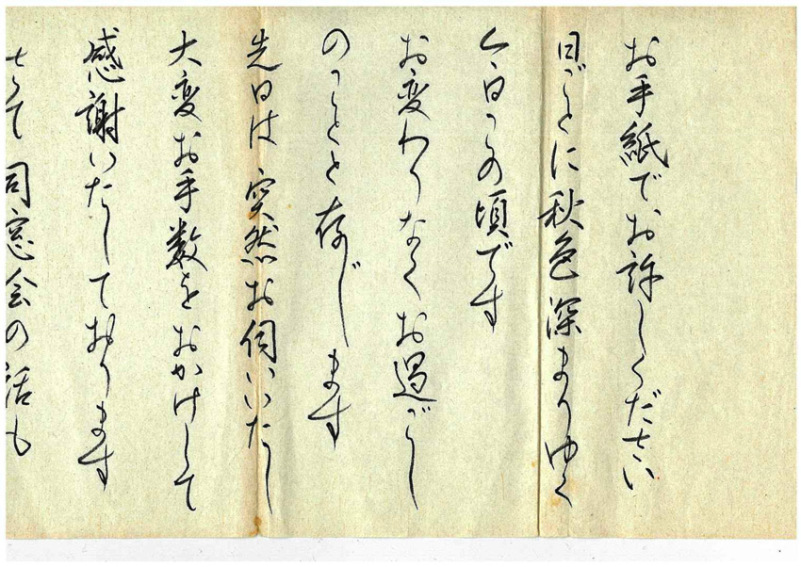 お手紙でお許しください
日ごとに秋色深まりゆく
今日この頃です
お変わりなくお過ごし
のことと存じます
先日は突然お伺いいたし
大変お手数をおかけして
感謝いたしております
さて同窓会の話も